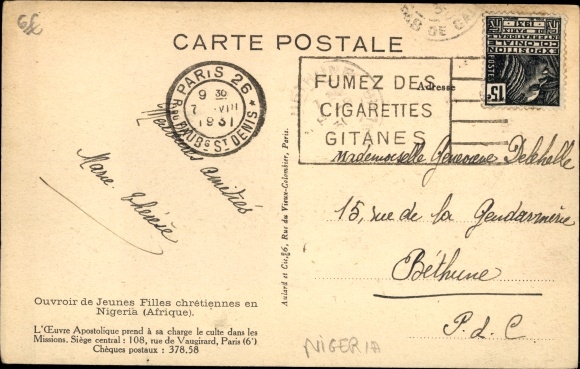 6f
CARTE POSTALE
PARIS 26
9 30
7 VIII
1931
R. DU FAUBG ST DENIS
FUMEZ DES
CIGARETTES
GITANES
EXPOSITION
COLONIALE
INTERNATIONALE
PARIS 1931
POSTES
15c
Adresse
Meilleures amitiés
Marie-Thérèse
Mademoiselle Geneviève Delehelle
15, rue de la Gendarmerie
Béthune
P. d. C
Aulard et Cie, 86, Rue du Vieux-Colombier, Paris.
Ouvroir de Jeunes Filles chrétiennes en
Nigeria (Afrique).
L'Œuvre Apostolique prend à sa charge le culte dans les
Missions. Siège central : 108, rue de Vaugirard, Paris (6e)
Chèques postaux : 378.58
NIGERIA